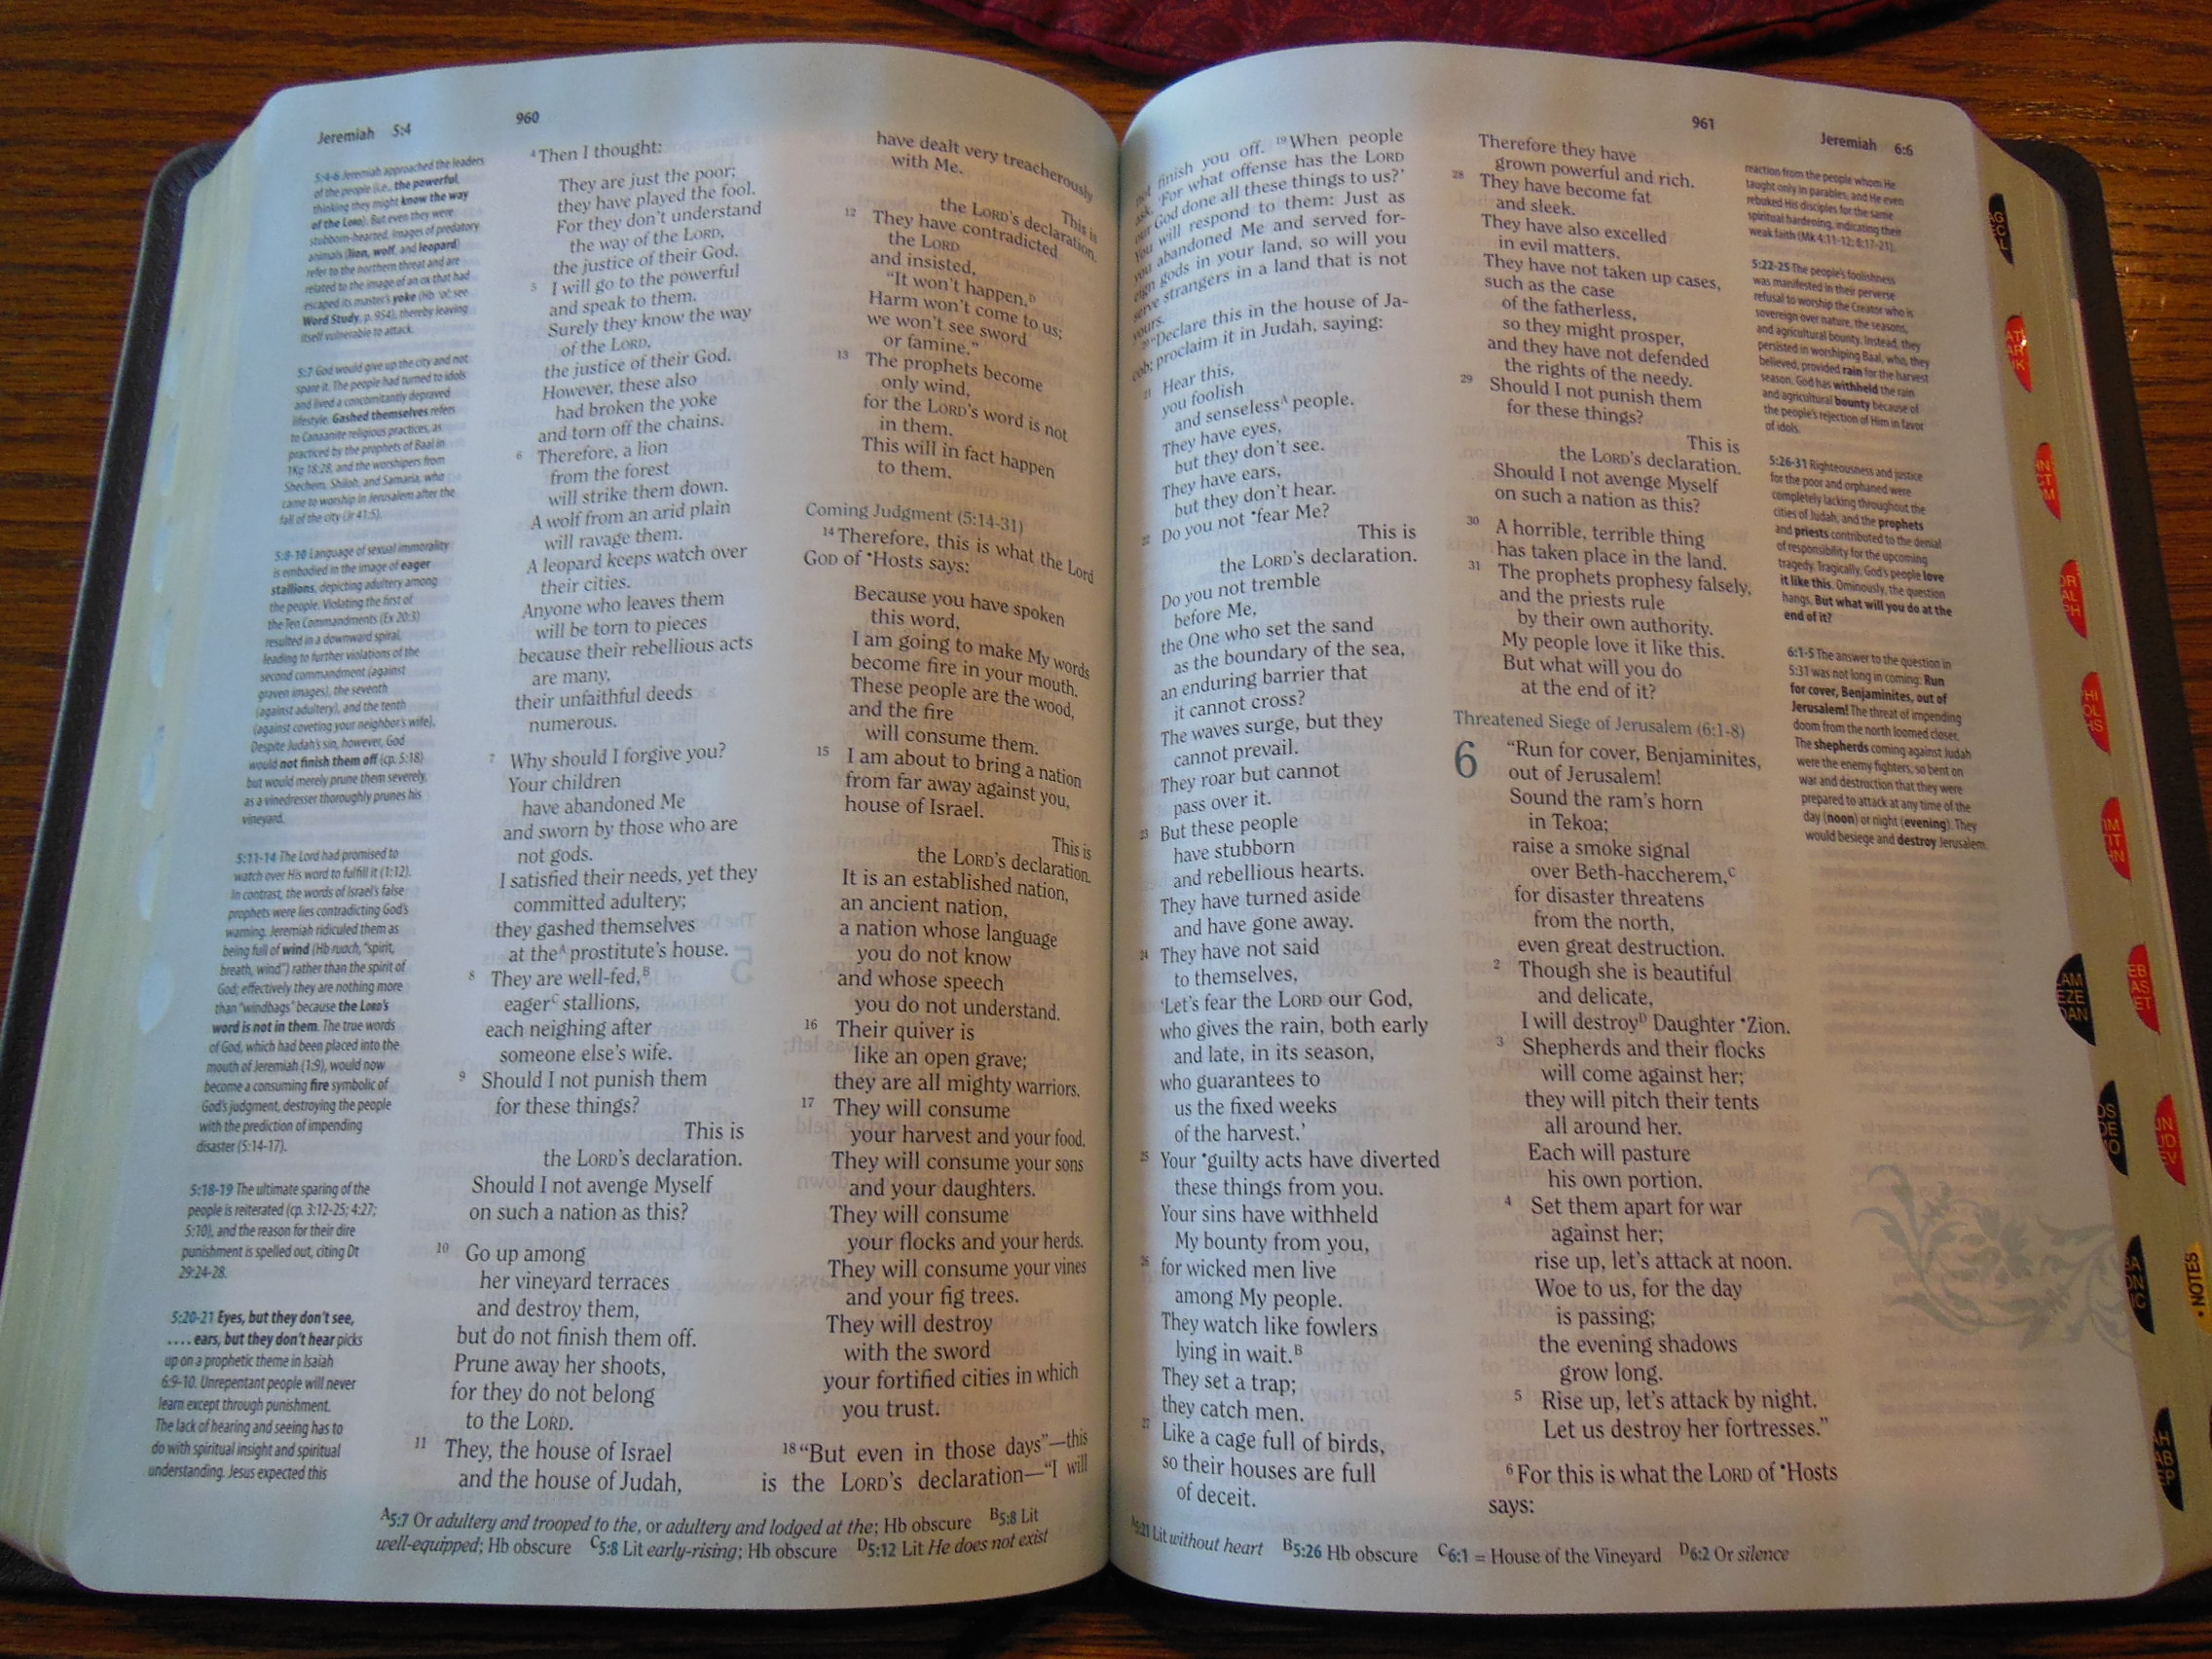 Jeremiah 5:4
960
5:4-6 Jeremiah approached the leaders
of the people (i.e., the powerful,
thinking they might know the way
of the LORD). But even they were
stubborn-hearted. Images of predatory
animals (lion, wolf, and leopard)
refer to the northern threat and are
related to the image of an ox that had
escaped its master's yoke (Hb 'ol; see
Word Study, p. 954), thereby leaving
itself vulnerable to attack.
5:7 God would give up the city and not
spare it. The people had turned to idols
and lived a concomitantly depraved
lifestyle. Gashed themselves refers
to Canaanite religious practices, as
practiced by the prophets of Baal in
1Kg 18:28, and the worshipers from
Shechem, Shiloh, and Samaria, who
came to worship in Jerusalem after the
fall of the city (Jr 41:5).
5:8-10 Language of sexual immorality
is embodied in the image of eager
stallions, depicting adultery among
the people. Violating the first of
the Ten Commandments (Ex 20:3)
resulted in a downward spiral,
leading to further violations of the
second commandment (against
graven images), the seventh
(against adultery), and the tenth
(against coveting your neighbor's wife).
Despite Judah's sin, however, God
would not finish them off (cp. 5:18)
but would merely prune them severely,
as a vinedresser thoroughly prunes his
vineyard.
5:11-14 The Lord had promised to
watch over His word to fulfill it (1:12).
In contrast, the words of Israel's false
prophets were lies contradicting God's
warning. Jeremiah ridiculed them as
being full of wind (Hb ruach, "spirit,
breath, wind") rather than the spirit of
God; effectively they are nothing more
than "windbags" because the LORD's
word is not in them. The true words
of God, which had been placed into the
mouth of Jeremiah (1:9), would now
become a consuming fire symbolic of
God's judgment, destroying the people
with the prediction of impending
disaster (5:14-17).
5:18-19 The ultimate sparing of the
people is reiterated (cp. 3:12-25; 4:27;
5:10), and the reason for their dire
punishment is spelled out, citing Dt
29:24-28.
5:20-21 Eyes, but they don't see,
. . . . ears, but they don't hear picks
up on a prophetic theme in Isaiah
6:9-10. Unrepentant people will never
learn except through punishment.
The lack of hearing and seeing has to
do with spiritual insight and spiritual
understanding. Jesus expected this
4 Then I thought:
They are just the poor;
they have played the fool.
For they don't understand
the way of the LORD,
the justice of their God.
5 I will go to the powerful
and speak to them.
Surely they know the way
of the LORD,
the justice of their God.
However, these also
had broken the yoke
and torn off the chains.
6 Therefore, a lion
from the forest
will strike them down.
A wolf from an arid plain
will ravage them.
A leopard keeps watch over
their cities.
Anyone who leaves them
will be torn to pieces
because their rebellious acts
are many,
their unfaithful deeds
numerous.
7 Why should I forgive you?
Your children
have abandoned Me
and sworn by those who are
not gods.
I satisfied their needs, yet they
committed adultery;
they gashed themselves
at theA prostitute's house.
8 They are well-fed,B
eagerC stallions,
each neighing after
someone else's wife.
9 Should I not punish them
for these things?
This is
the LORD's declaration.
Should I not avenge Myself
on such a nation as this?
10 Go up among
her vineyard terraces
and destroy them,
but do not finish them off.
Prune away her shoots,
for they do not belong
to the LORD.
11 They, the house of Israel
and the house of Judah,
have dealt very treacherously
with Me.
This is
the LORD's declaration.
12 They have contradicted
the LORD
and insisted,
"It won't happen.D
Harm won't come to us;
we won't see sword
or famine."
13 The prophets become
only wind,
for the LORD's word is not
in them.
This will in fact happen
to them.
Coming Judgment (5:14-31)
14 Therefore, this is what the Lord
GOD of •Hosts says:
Because you have spoken
this word,
I am going to make My words
become fire in your mouth.
These people are the wood,
and the fire
will consume them.
15 I am about to bring a nation
from far away against you,
house of Israel.
This is
the LORD's declaration.
It is an established nation,
an ancient nation,
a nation whose language
you do not know
and whose speech
you do not understand.
16 Their quiver is
like an open grave;
they are all mighty warriors.
17 They will consume
your harvest and your food.
They will consume your sons
and your daughters.
They will consume
your flocks and your herds.
They will consume your vines
and your fig trees.
They will destroy
with the sword
your fortified cities in which
you trust.
18 "But even in those days"—this
is the LORD's declaration—"I will
A5:7 Or adultery and trooped to the, or adultery and lodged at the; Hb obscure B5:8 Lit
well-equipped; Hb obscure C5:8 Lit early-rising; Hb obscure D5:12 Lit He does not exist
961
Jeremiah 6:6
not finish you off. 19 When people
ask, 'For what offense has the LORD
our God done all these things to us?'
You will respond to them: Just as
you abandoned Me and served for-
eign gods in your land, so will you
serve strangers in a land that is not
yours.
20 "Declare this in the house of Ja-
cob; proclaim it in Judah, saying:
21 Hear this,
you foolish
and senselessA people.
They have eyes,
but they don't see.
They have ears,
but they don't hear.
22 Do you not •fear Me?
This is
the LORD's declaration.
Do you not tremble
before Me,
the One who set the sand
as the boundary of the sea,
an enduring barrier that
it cannot cross?
The waves surge, but they
cannot prevail.
They roar but cannot
pass over it.
23 But these people
have stubborn
and rebellious hearts.
They have turned aside
and have gone away.
24 They have not said
to themselves,
'Let's fear the LORD our God,
who gives the rain, both early
and late, in its season,
who guarantees to
us the fixed weeks
of the harvest.'
25 Your •guilty acts have diverted
these things from you.
Your sins have withheld
My bounty from you,
26 for wicked men live
among My people.
They watch like fowlers
lying in wait.B
They set a trap;
they catch men.
27 Like a cage full of birds,
so their houses are full
of deceit.
Therefore they have
grown powerful and rich.
28 They have become fat
and sleek.
They have also excelled
in evil matters.
They have not taken up cases,
such as the case
of the fatherless,
so they might prosper,
and they have not defended
the rights of the needy.
29 Should I not punish them
for these things?
This is
the LORD's declaration.
Should I not avenge Myself
on such a nation as this?
30 A horrible, terrible thing
has taken place in the land.
31 The prophets prophesy falsely,
and the priests rule
by their own authority.
My people love it like this.
But what will you do
at the end of it?
Threatened Siege of Jerusalem (6:1-8)
6 "Run for cover, Benjaminites,
out of Jerusalem!
Sound the ram's horn
in Tekoa;
raise a smoke signal
over Beth-haccherem,C
for disaster threatens
from the north,
even great destruction.
2 Though she is beautiful
and delicate,
I will destroyD Daughter •Zion.
3 Shepherds and their flocks
will come against her;
they will pitch their tents
all around her.
Each will pasture
his own portion.
4 Set them apart for war
against her;
rise up, let's attack at noon.
Woe to us, for the day
is passing;
the evening shadows
grow long.
5 Rise up, let's attack by night.
Let us destroy her fortresses."
6 For this is what the LORD of •Hosts
says:
reaction from the people whom He
taught only in parables, and He even
rebuked His disciples for the same
spiritual hardening, indicating their
weak faith (Mk 4:11-12; 8:17-21).
5:22-25 The people's foolishness
was manifested in their perverse
refusal to worship the Creator who is
sovereign over nature, the seasons,
and agricultural bounty. Instead, they
persisted in worshiping Baal, who, they
believed, provided rain for the harvest
season. God has withheld the rain
and agricultural bounty because of
the people's rejection of Him in favor
of idols.
5:26-31 Righteousness and justice
for the poor and orphaned were
completely lacking throughout the
cities of Judah, and the prophets
and priests contributed to the denial
of responsibility for the upcoming
tragedy. Tragically, God's people love
it like this. Ominously, the question
hangs, But what will you do at the
end of it?
6:1-5 The answer to the question in
5:31 was not long in coming: Run
for cover, Benjaminites, out of
Jerusalem! The threat of impending
doom from the north loomed closer.
The shepherds coming against Judah
were the enemy fighters, so bent on
war and destruction that they were
prepared to attack at any time of the
day (noon) or night (evening). They
would besiege and destroy Jerusalem.
A5:21 Lit without heart B5:26 Hb obscure C6:1 = House of the Vineyard D6:2 Or silence
EZE
DAN
• NOTES